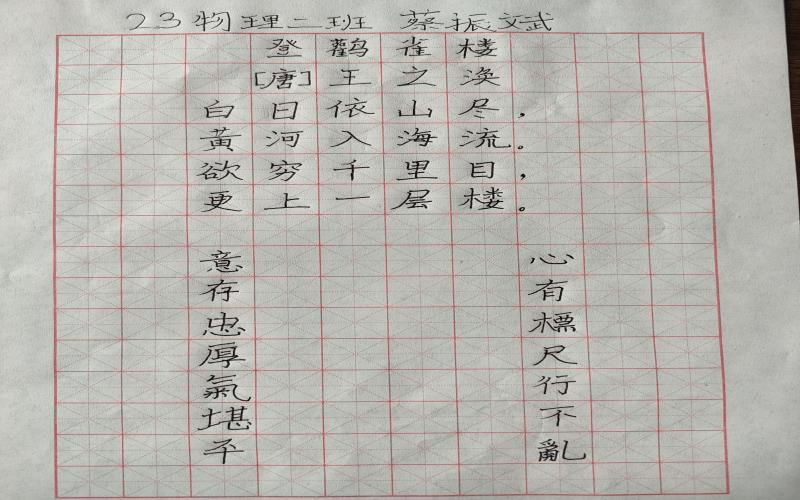 23物理二班 蔡振文武
登鹳雀楼
[唐]王之涣
白日依山尽，
黄河入海流。
欲穷千里目，
更上一层楼。
心有標尺行不亂
意存忠厚氣堪平